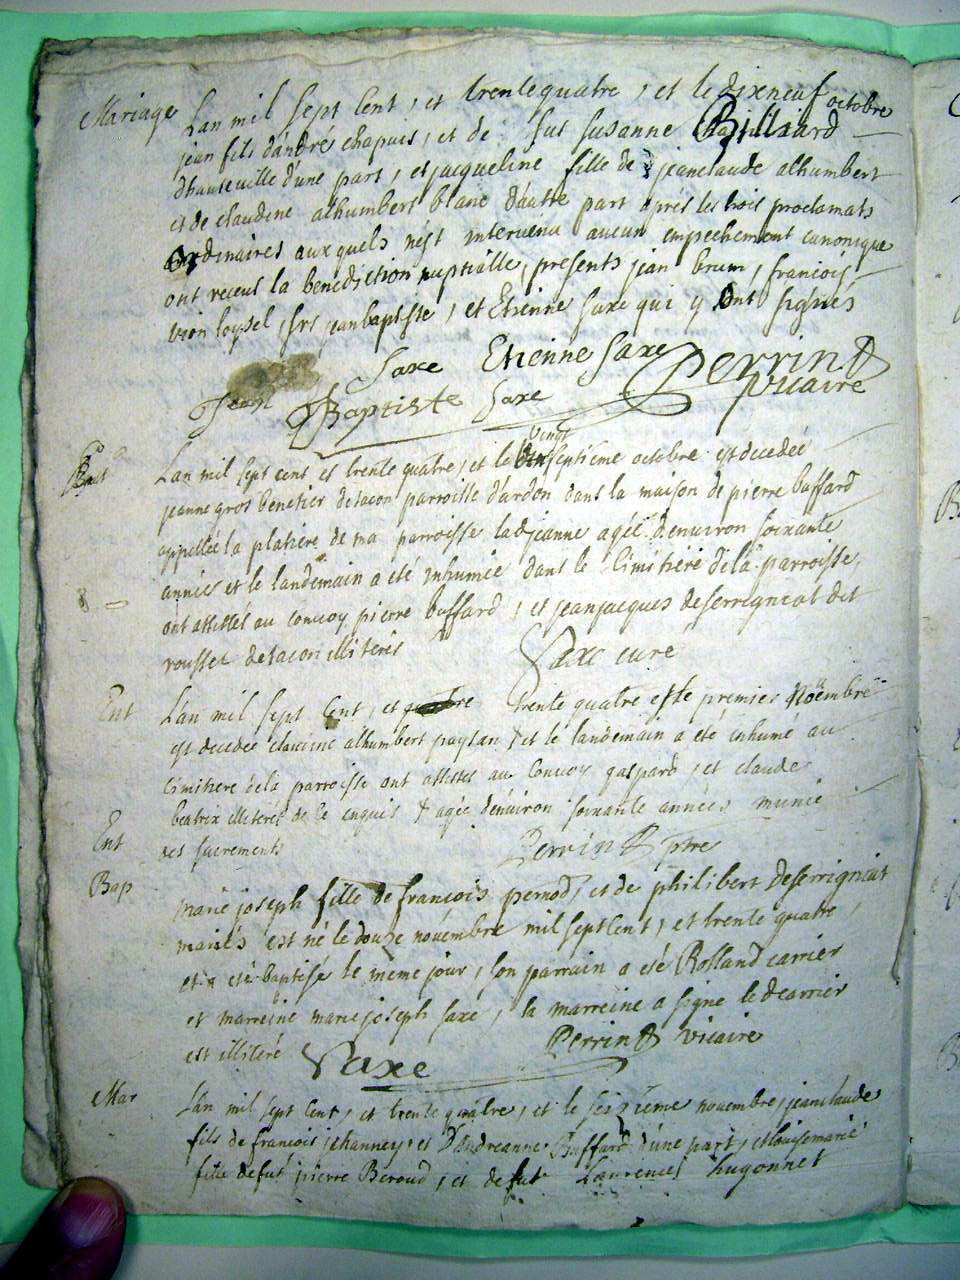 Mariage Lan mil sept Cent, et trente quatre, et le dixneuf octobre
jean fils d'andré chapuis, et de fut susanne Billiard
dhauteville d'une part, et jacqueline fille de jeanclaude alhumbert
et de claudine alhumbert blanc d'autre part après les trois proclamats
ordinaires auxquels nest intervenu aucun empechement canonique
ont receus la benediction nuptialle, presents jean brum, francois
vion loysel, srs jeanbaptiste, et Etienne Saxe qui y ont signés
Saxe Etienne Saxe Perrin
Jean Baptiste Saxe vicaire
vingt
Ent Lan mil sept cent et trente quatre, et le septième octobre est decedeé
jeanne gros benetier de tacon parroisse d'ardon dans la maison de pierre buffard
appellée la platiere de ma parroisse ladjeanne agée denviron soixante
annies et le landemain a été inhumie dans le Cimitiére dela parroisse,
ont assistés au convoy pierre buffard, et jeanjacques deserrignieat dit
rousset detacon illiterés Saxe curé
Ent Lan mil sept Cent, et trente quatre et le premier Novembre
est decedée claudine alhumbert paysan et le landemain a été inhumé au
Cimitiere dela parroisse ont assistes au Convoy gaspard, et claude
beatrix illiterés de ce enquis & agée denviron soixante années munie
Ent des sacrements Perrin ptre
Bap marie joseph fille de francois pernod, et de philibert deserrignieat
mariés est né le douze novembre mil sept Cent, et trente quatre,
et a eté baptisé le meme jour, son parrain a eté Rolland carrier
et marreine marie joseph saxe, la marreine a signe le dcarrier
est illiteré Saxe Perrin vicaire
Mar Lan mil sept Cent, et trente quatre, et le seizieme novembre, jeanclaude
fils de francois jehanney, et d'andreanne Buffard d'une part, et louise marie
fille de fut pierre Beroud, et de fut Laurence hugonnet